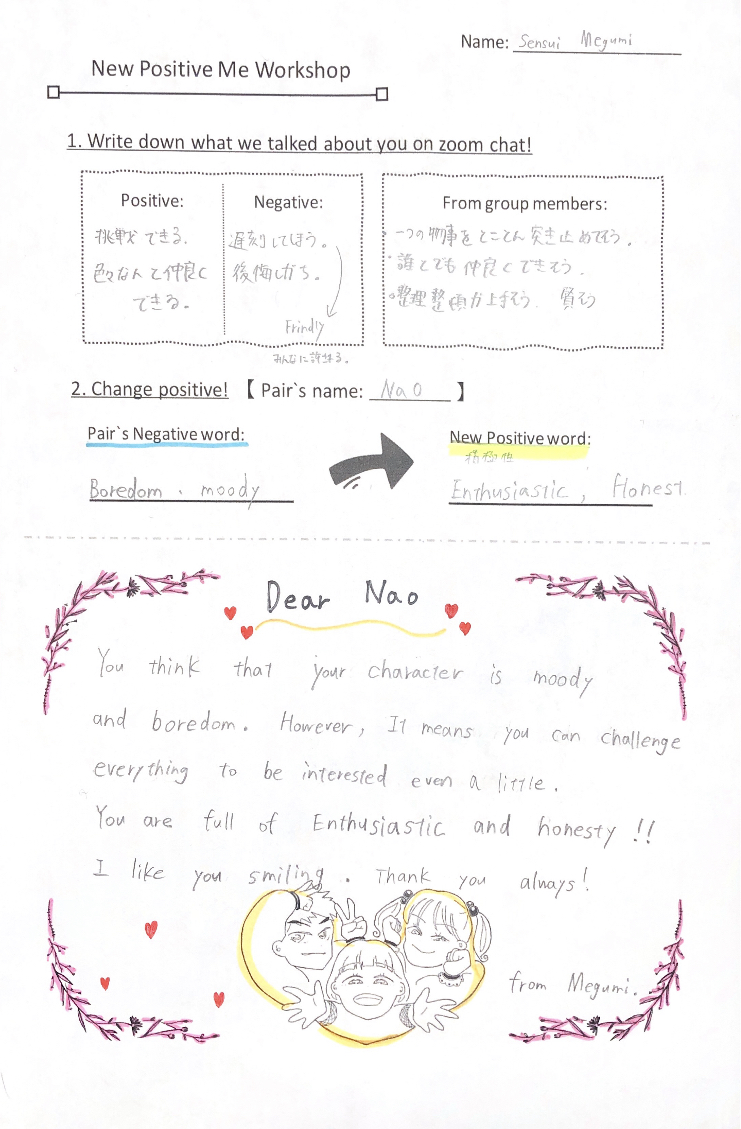 Name: Sensui Megumi
New Positive Me Workshop
1. Write down what we talked about you on zoom chat!
Positive:
挑戦できる.
色々な人と仲良く
できる。
Negative:
遅刻してしまう。
後悔しがち。
Frindly
みんなに
From group members:
・一つの物事をとことん突き止めてそう.
・誰とでも仲良くできそう.
・整理整頓が上手そう. 賢そう
2. Change positive! 【 Pair`s name: Nao 】
Pair`s Negative word:
Boredom 、 moody
New Positive word:
積極性
Enthusiastic , Honest
Dear Nao
You think that your character is moody
and boredom. However, It means you can challenge
everything to be interested even a little.
You are full of Enthusiastic and honesty !!
I like you smiling . Thank you always!
from Megumi.